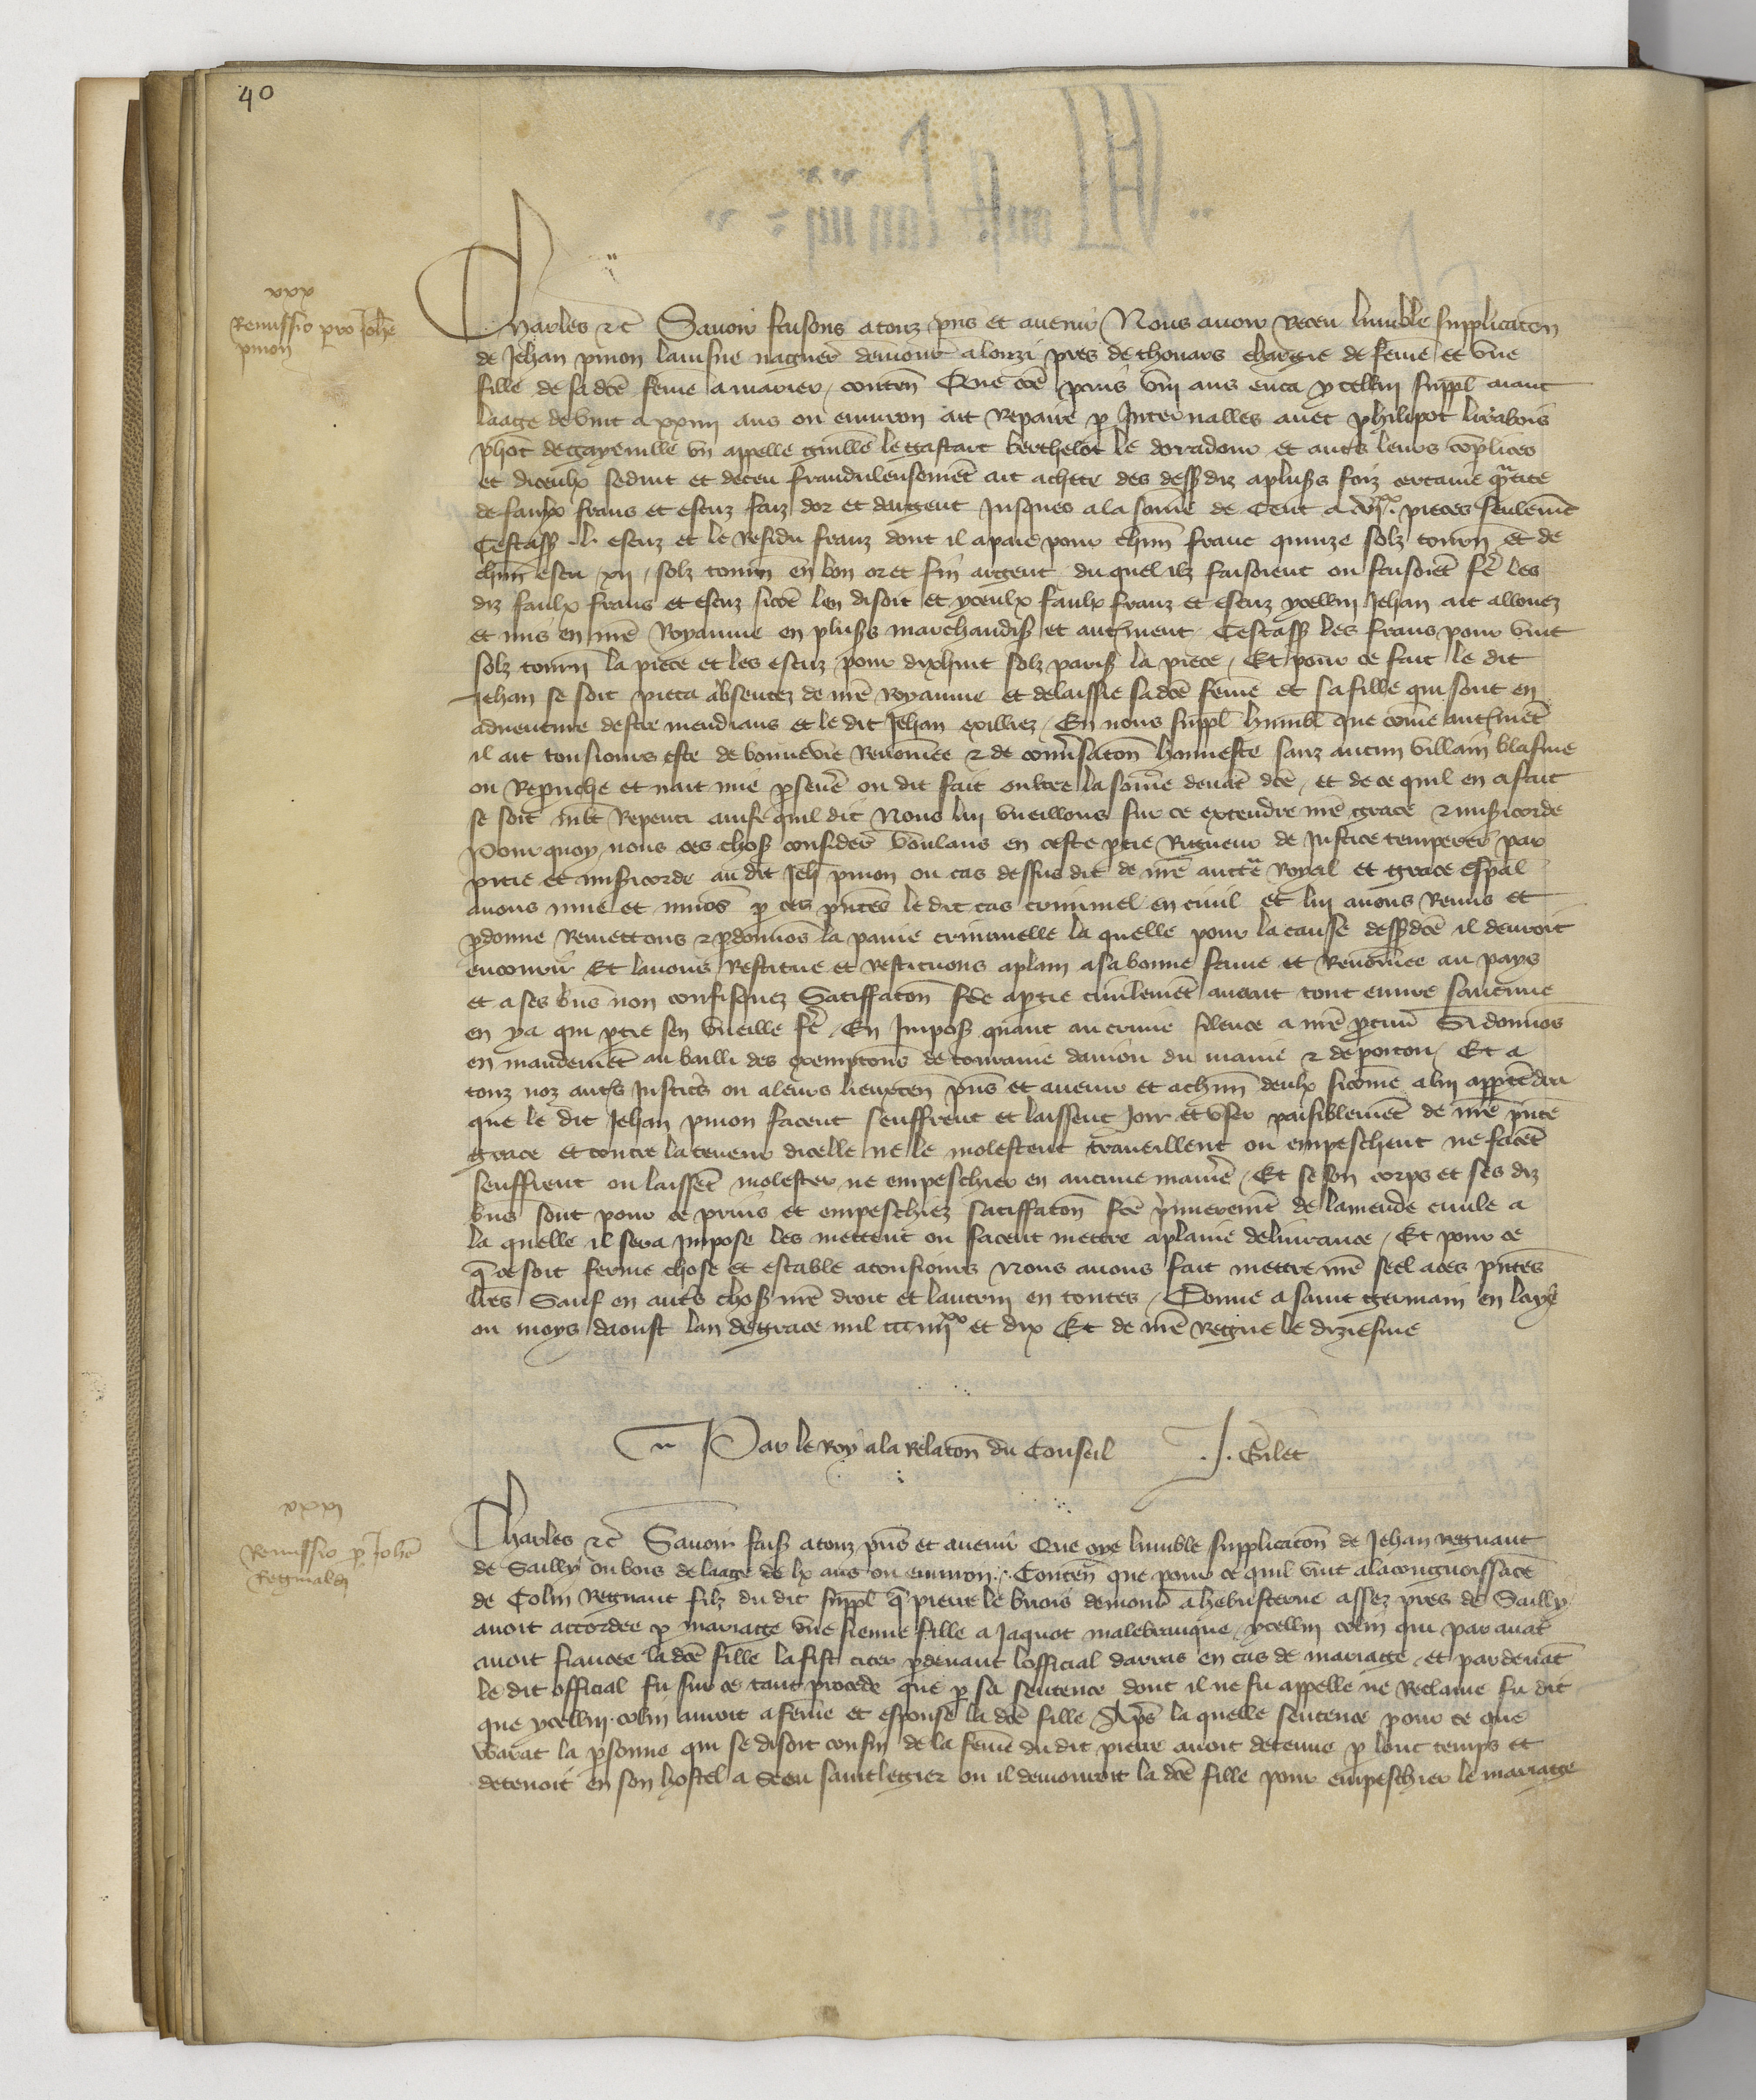 40
xxx
Remissio pro Johe
pinon
Charles &c Savoir faisons a touz pns et avenir Nous avoir Receu lumble supplicacon
de Jehan pinon laisne nagueres demour a louzi pres de thouars chargie de feme et une
fille de sa dce feme a marier, conten Que come puis viij ans enca ycellui suppl aiant
laage de vint a xxiiij ans ou environ ait Repaire p Intervalles avec philipot
phot de gayenville un appelle guille le gastart berthelot le doradour et autres leurs complices
et diceulx seduit et deceu fraudulensement ait achete des dess diz a pluss foiz certaine qtite
de faulx frans et escuz faiz dor et dargent Jusques a la some de Cent a pieces seulemt
Cestass .L. escuz et le Residu franz dont il a paie pour chun franc quinze solz tourn et de
chun escu xij solz tourn en bon or et fin argent du quel ilz faisoient ou faisoiet fe les
diz faulx frans et escuz sicoe len disoit et yceulx faulx franz et escuz ycellui Jehan ait allouez
et mis en nre Royaume en pluss marchandiss et autrment Cestass les frans pour vint
solz tourn la piece et les escuz pour dixhuit solz pariss la piece, Et pour ce fait le dit
Jehan se soit pieca absentez de nre Royaume et delaissie sa dce feme et sa fille qui sont en
adventure destre mendians et le dit Jehan exilliez, En nous suppl humbl que come autrmet
il ait tousiours este de bonne vie Renomee & de conversacon honneste sanz aucun villain blasme
ou Reprouche et nait mie pseve ou dit fait oultre la some devat dce, et de ce quil en a fait
se soit mlt Repenti ainse quil dit Nous lui vueillons sur ce extendre nre grace & misicorde
Pour quoy nous ces choss considere voulans en ceste ptie Rigueur de Justice temperer par
pitie et misicorde au dit Jeh pinon ou cas dessus dit de nre auctte Royal et grace espal
avons mue et muos p ces pntes le dit cas criminel en civil et lui avons Remis et
pdonne Remettons & pdonnos la paine criminelle la quelle pour la cause dessdce il devroit
encourir Et lavons Restitue et Restituons a plain a sa bonne fame et Renomee au pays
et a ses bns non confisquez Satiffacon fce a ptie civilemet avant tout euvre
en ya qui ptie sen vueille fe, En Imposs quant au crime silence a nre pcur Si donnos
en mandemet au bailli des exempcons de touraine danjou du maine & de poitou, Et a
touz noz autrs Justices ou a leurs lieuxten pns et avenir et a chun deulx sicome a lui apptedra
que le dit Jehan pinon facent seuffrent et laissent Joir et user paisiblemet de nre pnte
grace et contre la teneur dicelle ne le molestent traveillent ou empeschent ne facet
seuffrent ou laisset molester ne empeschier en aucune maniere, Et se son corps et ses diz
bns sont pour ce prins et empeschiez satiffacon fce pmieremet de lamende civile a
la quelle il sera Impose les mettent ou facent mettre a plaine delivrance, Et pour ce
q ce soit ferme chose et estable a tousiours Nous avons fait mettre nre seel a ces pntes
lres Sauf en autrs choss nre droit et lautrui en toutes, Donne a saint germain en laye
ou moys daoust lan de grace mil ccc iiijxx et dix Et de nre Regne le diziesme
Par le Roy a la Relacon du Conseil J. Gilet
xxxi
Remissio p Johe
Reginaldi
Charles &c Savoir faiss a touz pns et avenir Que oye lumble supplicacon de Jehan Regnaut
de Sailly ou bois de laage de lx ans ou environ. Conten que pour ce quil vint a la congnoissace
de Colin Regnaut filz du dit suppl q pierre le bnois demour a hebusterne assez pres de Sailly
avoit accordee p mariage une sienne fille a Jaquot malebranque, ycellui colin qui par avat
avoit fiancee la dce fille la fist citer pdevant lofficial darras en cas de mariage et par devat
le dit official fu sur ce tant procede que p sa sentence dont il ne fu appelle ne Reclame fu dit
que ycellui colin avroit a feme et espouse la dce fille, Aps la quelle sentence pour ce que
warat la psonne qui se disoit cousin de la feme du dit pierre avoit detenue p lonc temps et
detenoit en son hostel a saint legier ou il demouroit la dce fille pour empeschier le mariage